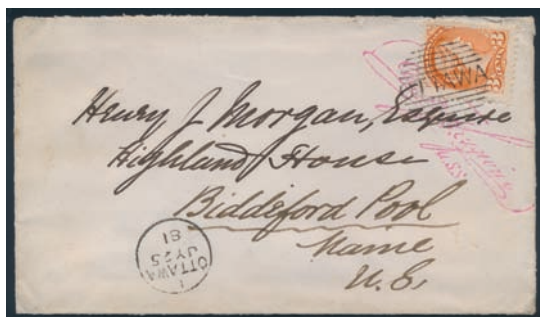 3
OTTAWA
Henry J Morgan, Esquire
Highland House
Biddeford Pool
Maine
U.S.
1
OTTAWA
JY 25
81